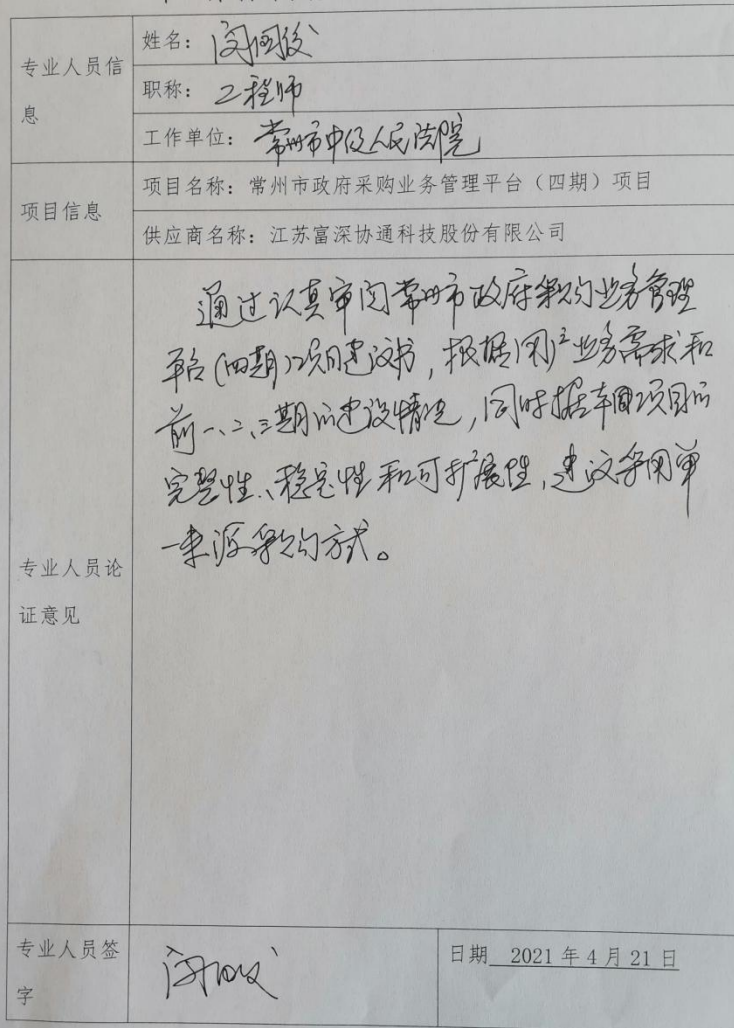 专业人员信
息
姓名：闵国俊
职称：工程师
工作单位：常州市中级人民法院
项目信息
项目名称：常州市政府采购业务管理平台（四期）项目
供应商名称：江苏富深协通科技股份有限公司
专业人员论
证意见
通过认真审阅常州市政府采购业务管理
平台(四期)项目建议书，根据用户业务需求和
前一、二、三期的建设情况，同时据本项目的
完整性、稳定性和可扩展性，建议采用单
一来源采购方式。
专业人员签
字
日期 2021 年 4 月 21 日